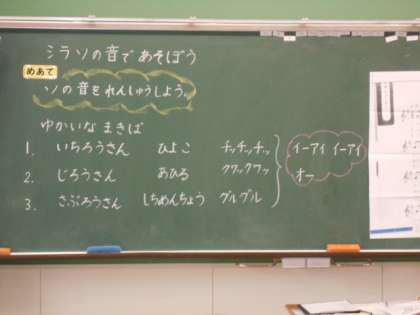 シラソの音であそぼう
めあて
ソの音をれんしゅうしよう。
ゆかいなまきば
1. いちろうさん ひよこ チッチッチッ
2. じろうさん あひる クワックワッ
3. さぶろうさん しちめんちょう グルグル
イーアイ イーアイ
オー